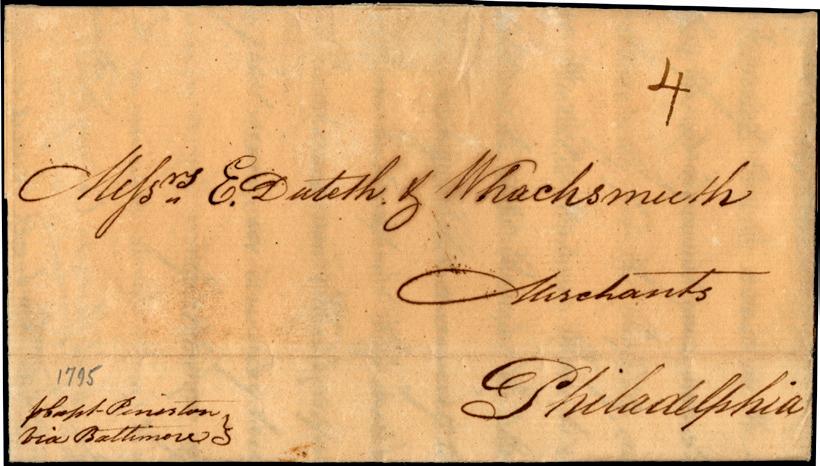 4
Messrs E. Duteth. & Whachsmuth
Merchants
Philadelphia
1795
p Capt Peniston
Via Baltimore